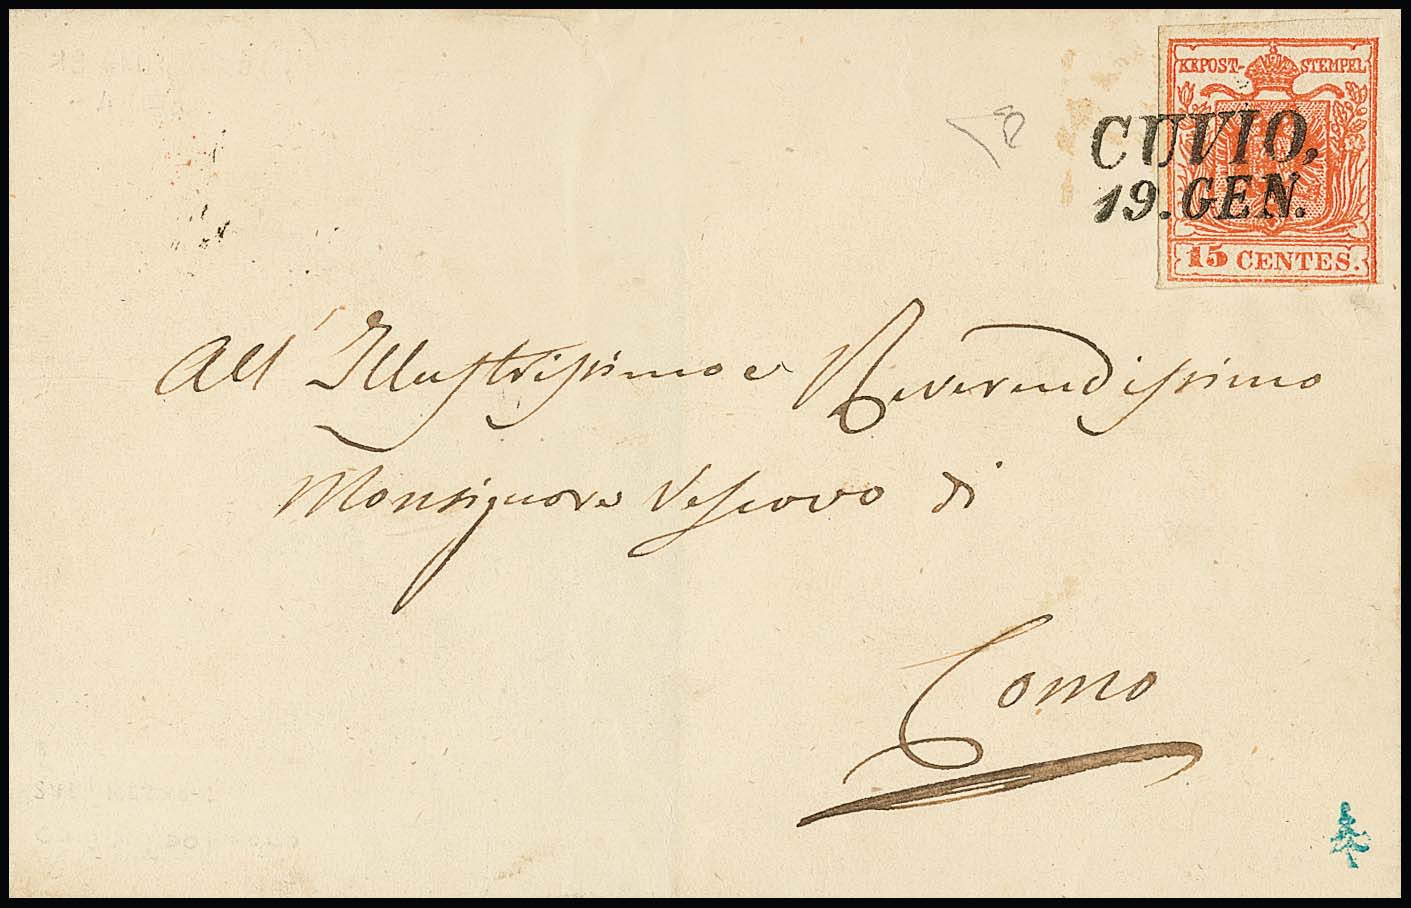 KKPOST-STEMPEL
CUVIO,
19.GEN.
15 CENTES.
All' Illustrissimo e Reverendissimo
Monsignore Vescovo di
Como